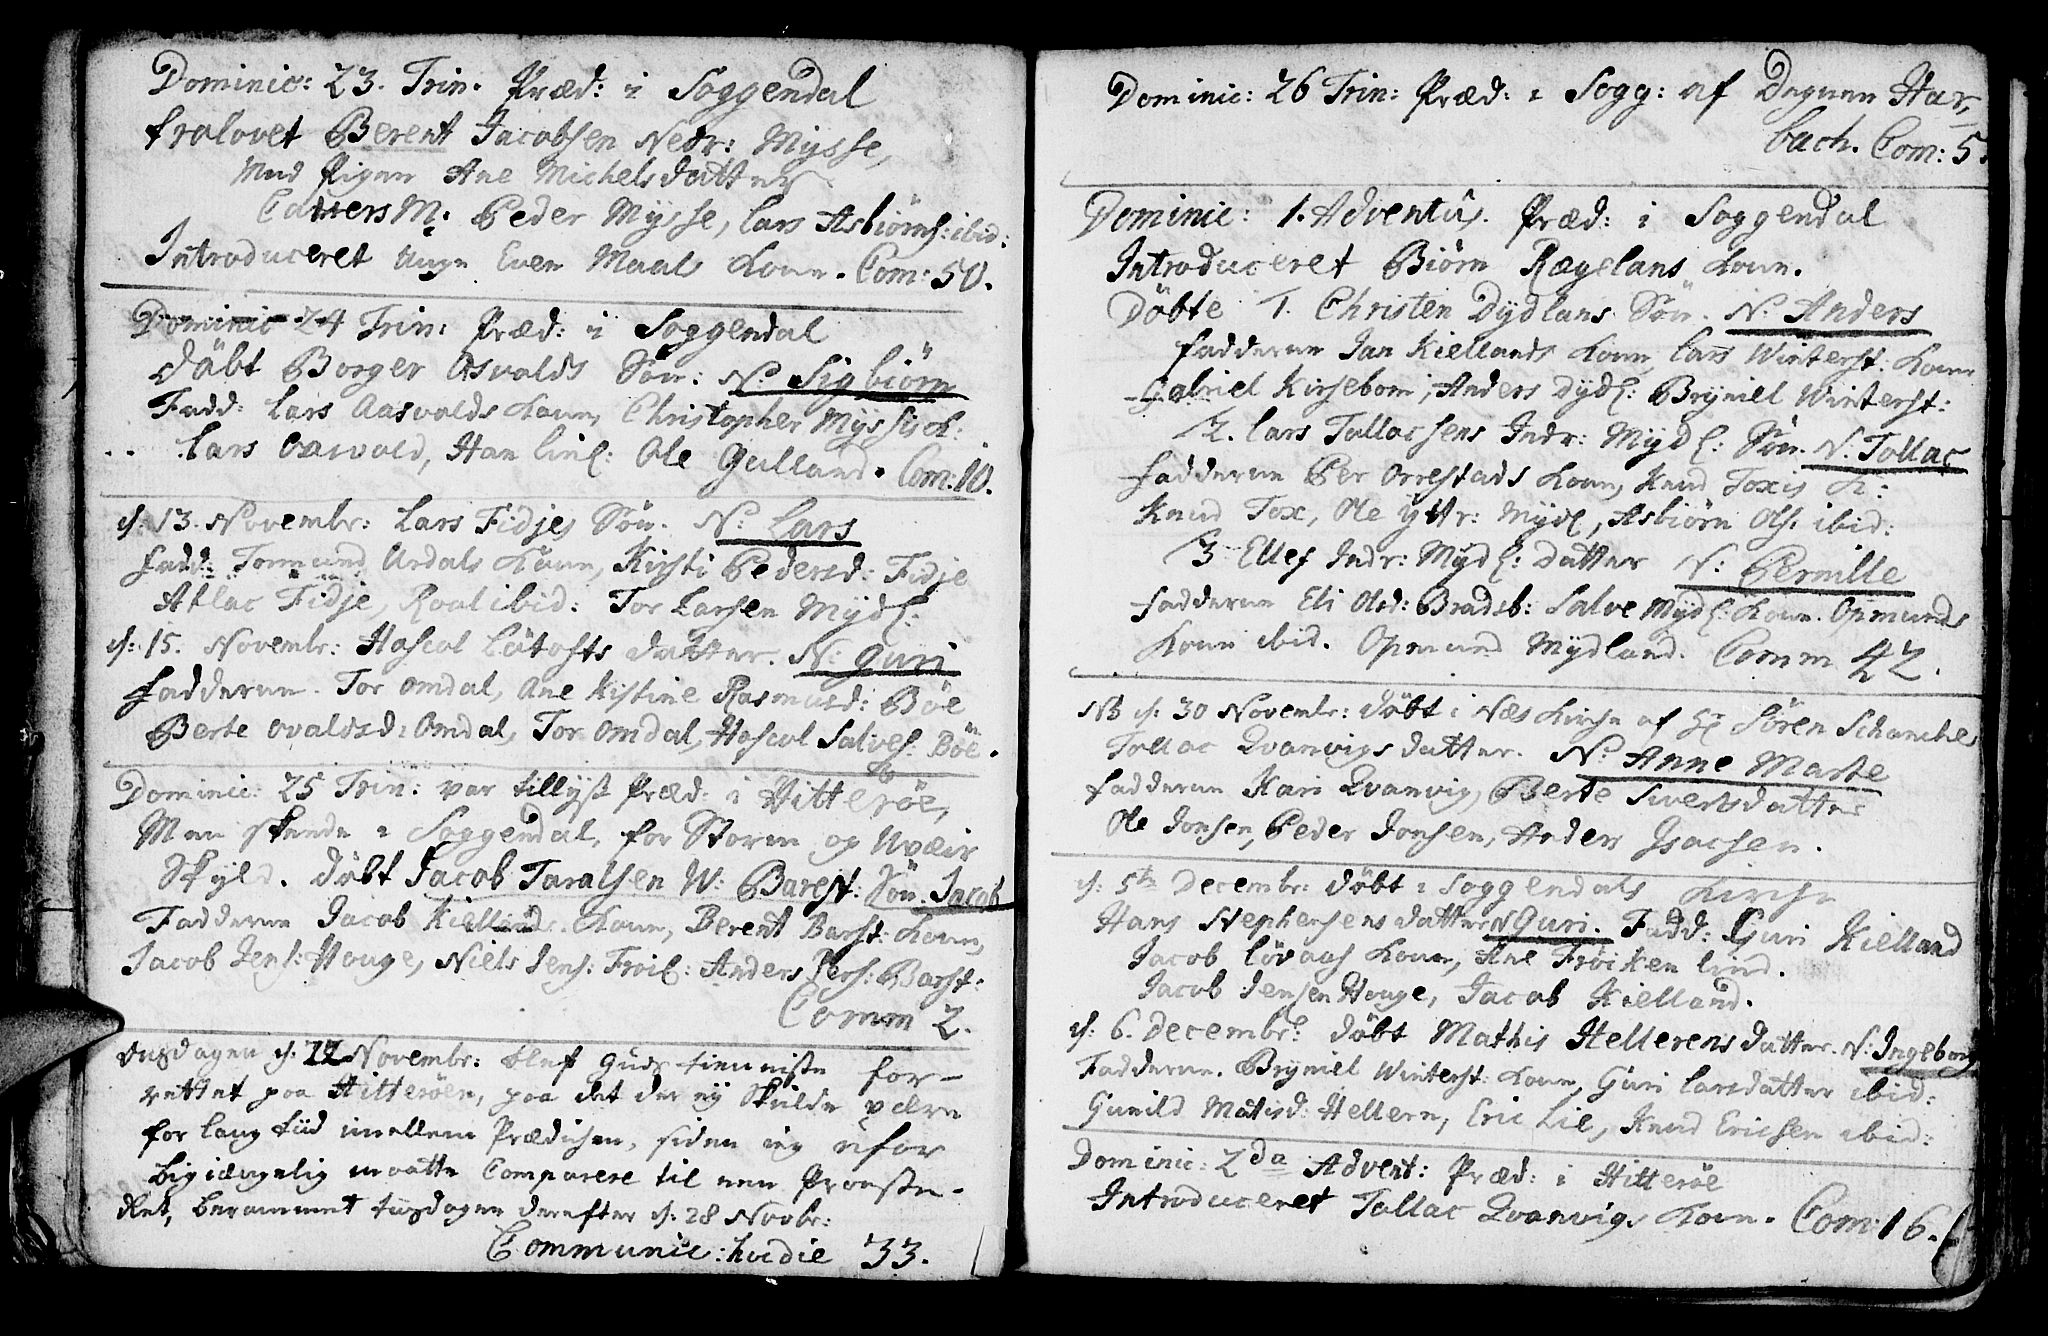 Dominic: 23. Trin. Præd: i Soggendal
trolovet Berent Jacobsen Nedr: Mysse,
Med Pigen Ane Michelsdatter
Caverr M. Peder Mysse, Lars Asbiørns: ibid:
Introduceret unge Even Maals Kone. Com: 50.
Dominic 24 Trin: Præd: i Soggendal
Döbt Borger Osvalds Sön: N: Sigbiörn
Fadd: Lars Aasvalds Kone, Christopher Myssis K:
Lars Oasvald, Han Linl: Ole Gulland. Com: 10.
d: 13. Novembr: Lars Fidjes Sön. N: Lars
Fadd: Tormund Urdals Kone, Kirsti Pedersd: Fidje
Atlac Fidje, Roal ibid: Tor Larsen Mydl:
d: 15. Novembr: Hoscol Lötofts datter. N: Guri
Fadderne. Tor Omdal, Ane Kistine Rasmusd: Böe
Berte Ovaldsd: Omdal, Tor Omdal, Hoscol Salves: Böe.
Dominic: 25 Trin: var tillyst Præd: i Hitteröe,
Men skende i Soggendal, for Storm og Uveir
Skyld. Döbt Jacob Taralsen W: Barst: Sön. Jacob
Fadderne Jacob Kiellands Kone, Berent Barst: Kone,
Jacob Jens: Houge, Niels Jens: Froil: Anders Pers: Barst:
Comm 2.
Onsdagen d: 22 Novembr: blef Guds tienniste for-
rettet paa Hitteröen, paa det der ey skulde være
for lang tiid imellem Prædichen, siden ieg ufor
bigiængelig maatte Comparere til een Proeste-
Ret, berammet tiisdagen derefter d: 28 Novbr:
Communic: hodie 33.
Dominic: 26 Trin: Præd: i Sogg: af Degnen Har,
bach. Com: 5.
Dominic: 1. Adventûs. Præd: i Soggendal
Introduceret Biörn Rægelans Kone.
Döbte 1. Christen Dydlans Sön. N: Anders
Fadderne Jan Kiellands Kone, Lars Winterst: Kone
Gabriel Kirsebom, Anders Dydl: Brynild Winterst:
2. Lars Tallacsens Indr: Mydl: Sön. N. Tollac
Fadderne Per Orrestads Kone, Knud Toxis K:
Knud Tox, Ole Yttr: Mydl, Asbiörn Ols: ibid:
3 Ellef Indr: Mydl: datter N: Pernille
Fadderne Eli Olsd: Bradsb: Salve Mydl: Kone. Opmunds
Kone ibid. Opmund Mydland. Comm 42.
NB d: 30 Novembr: döbt i Næs Kirche af Hr Sören Schanche
Tollac Qvanvigs datter. N: Anne Marte
Fadderne Kari Qvanvig, Berte Sivertsdatter
Ole Jonsen, Peder Jonsen, Ander Isachsen.
d: 5te Decembr: döbt i Soggendals Kirche
Hans Stephensens datter N Guri. Fadd: Guri Kielland
Jacob Lövaas Kone, Ane Frøiken Lind.
Jacob Jensen Houge, Jacob Kielland.
d: 6. Decembr: döbt Mathis Hellerens datter. N: Ingeborg
Fadderne. Brynild Winterst: Kone, Guri Larsdatter ibid:
Gunild Matisd: Helleren, Eric Lie, Knud Ericsen ibid:
Dominic: 2da Advent: Præd: i Hitteröe
Introduceret Tallac Qvanvigs Kone. Com: 16.